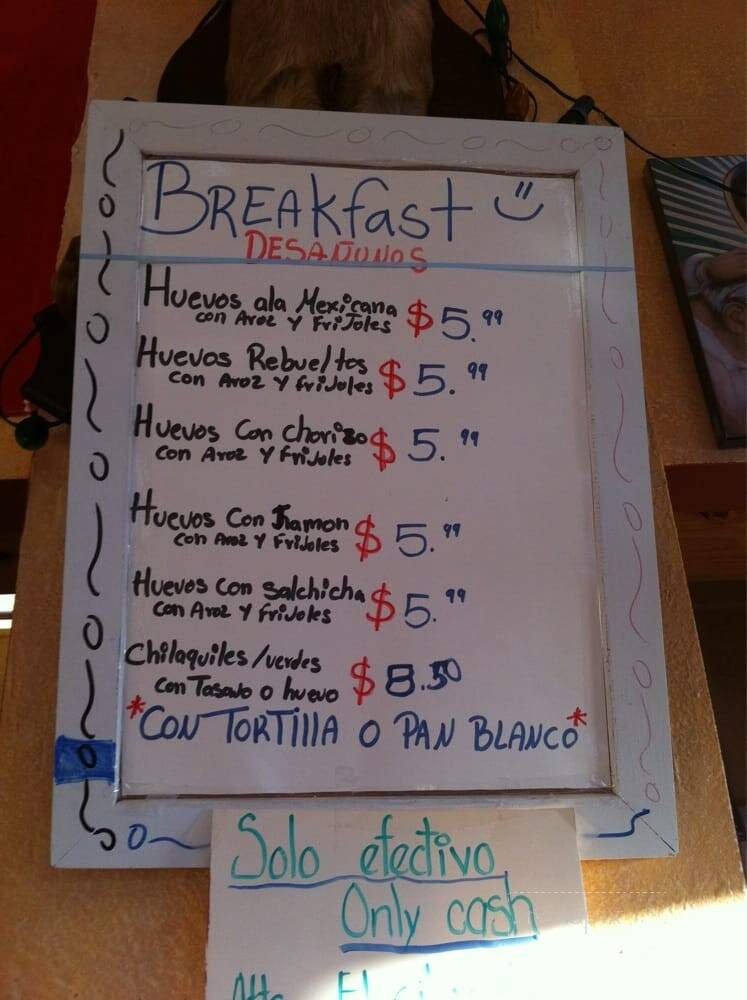 BREAKfast
DESAJUNOS
Huevos ala Mexicana $5.99
con Aroz Y FriJoles
Huevos Rebueltos $5.99
con Aroz Y friJoles
Huevos Con chorizo $5.99
con Aroz Y FriJoles
Huevos Con Jramon $5.99
con Aroz Y FriJoles
Huevos Con Salchicha $5.99
con Aroz Y FriJoles
Chilaquiles/verdes $8.50
con Tasajo o huevo
*CON TORTIllA O PAN BLANCO*
Solo efectivo
Only cash
Att.